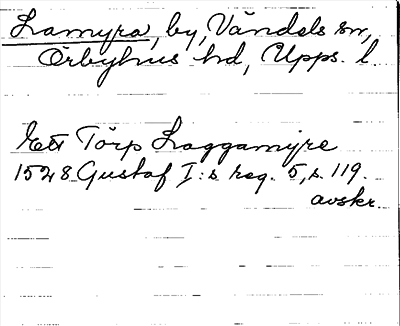 Lamyra, by, Vändels sn,
Örbyhus hd, Upps. l.
Ett Torp Laggamÿre
1528 Gustaf I:s reg. 5, s. 119.
avskr.